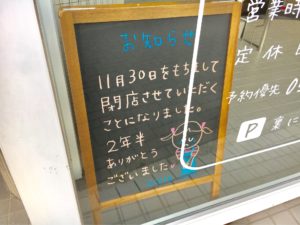 お知らせ
11月30日をもちまして
閉店させていただく
ことになりました。
2年半
ありがとう
ございました。
営業時
定休
予約優先
P